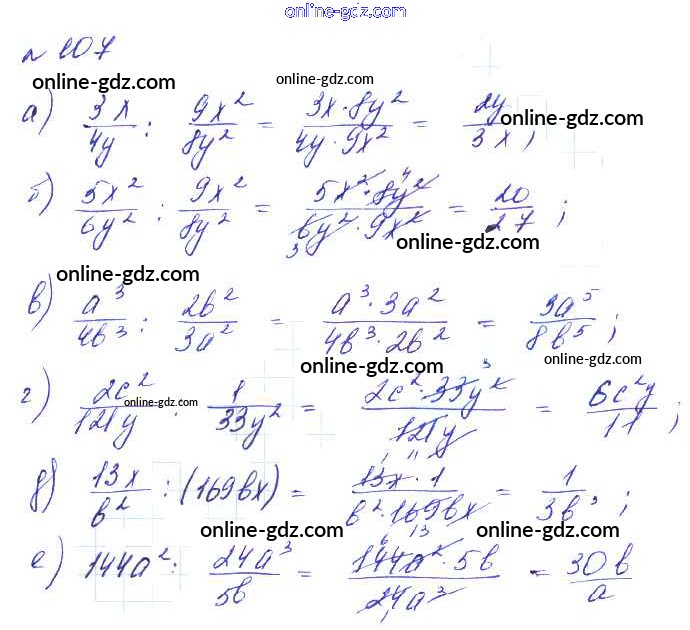 online-gdz.com
online-gdz.com
№ 107
online-gdz.com
online-gdz.com
а) 3x/4y : 9x²/8y² = 3x·8y²/4y·9x² = 2y/3x;
online-gdz.com
б) 5x²/6y² : 9x²/8y² = 5x²·8y²/6y²·9x² = 20/27;
4
3
online-gdz.com
online-gdz.com
в) a³/4b³ : 2b²/3a² = a³·3a²/4b³·2b² = 3a⁵/8b⁵;
online-gdz.com
online-gdz.com
г) 2c²/121y : 1/33y² = 2c²·33y²/121y = 6c²y/11;
3
11
online-gdz.com
д) 13x/b² : (169bx) = 13x·1/b²·169bx = 1/3b³;
13
online-gdz.com
online-gdz.com
е) 144a² : 24a³/5b = 144a²·5b/24a³ = 30b/a
6
1
online-gdz.com
online-gdz.com